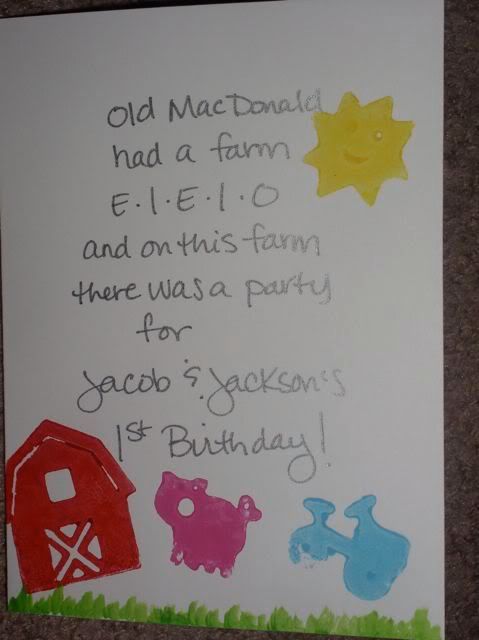 Old MacDonald
had a farm
E·I·E·I·O
and on this farm
there was a party
for
Jacob & Jackson's
1st Birthday!